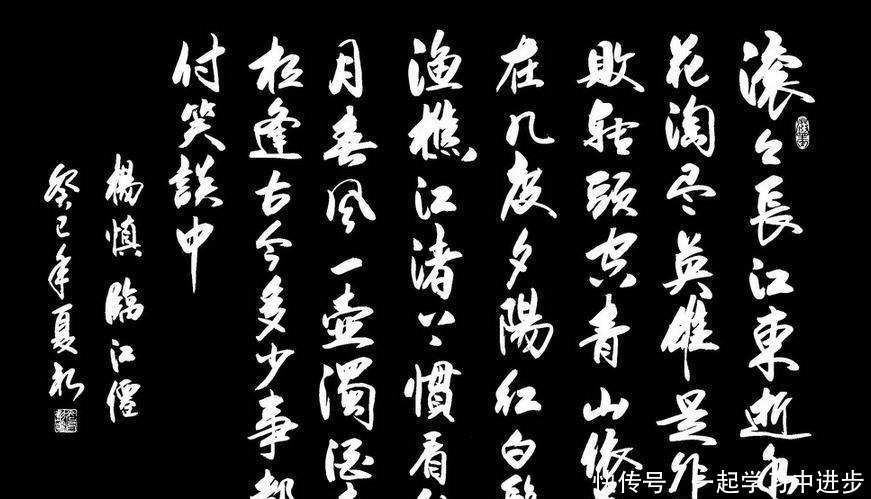 滚々長江東逝水
花淘尽英雄是非
敗转頭空青山依
在几度夕陽红白
渔樵江渚上慣看
月春风一壶濁酒
相逢古今多少事都
付笑談中
楊慎臨江僊
癸巳年夏
快传号/一起学习中进步